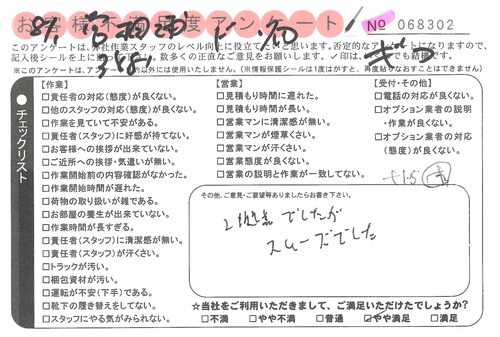 お客様不満足度アンケート
No 068302
このアンケートは、弊社作業スタッフのレベル向上に役立てたいと思います。否定的なアンケートになりますので、
記入後シールを上に
数多くの正直なご意見をお願いします。✓印は
でも結構です。
※このアンケートは、
以外には使用いたしません。(※情報保護シールは1度はがすと、再度貼
なおすことはできません)
チェックリスト
【作業】
□責任者の対応(態度)が良くない。
□他のスタッフの対応(態度)が良くない。
□作業を見ていて不安がある。
□責任者(スタッフ)に好感が持てない。
□お客様への挨拶が出来ていない。
□ご近所への挨拶・気遣いが無い。
□作業開始前の内容確認がなかった。
□作業開始時間が遅れた。
□荷物の取り扱いが雑である。
□お部屋の養生が出来ていない。
□作業時間が長すぎる。
□責任者(スタッフ)に清潔感が無い。
□責任者(スタッフ)が汗くさい。
□トラックが汚い。
□梱包資材が汚い。
□運転が不安(下手)である。
□靴下の履き替えをしてない。
□スタッフにやる気がみられない。
【営業】
□見積もり時間に遅れた。
□見積もり時間が長い。
□営業マンに清潔感が無い。
□営業マンが煙草くさい。
□営業マンが汗くさい。
□営業態度が良くない。
□営業の説明と作業が一致してない。
【受付・その他】
□電話の対応が良くない。
□オプション業者の説明
・作業が良くない。
□オプション業者の対応
(態度)が良くない。
その他、ご意見・ご要望等ありましたらお書き下さい。
でしたが
スムーズでした
☆当社をご利用いただきまして、ご満足いただけたでしょうか?
□不満 □やや不満 □普通 ☑やや満足 □満足